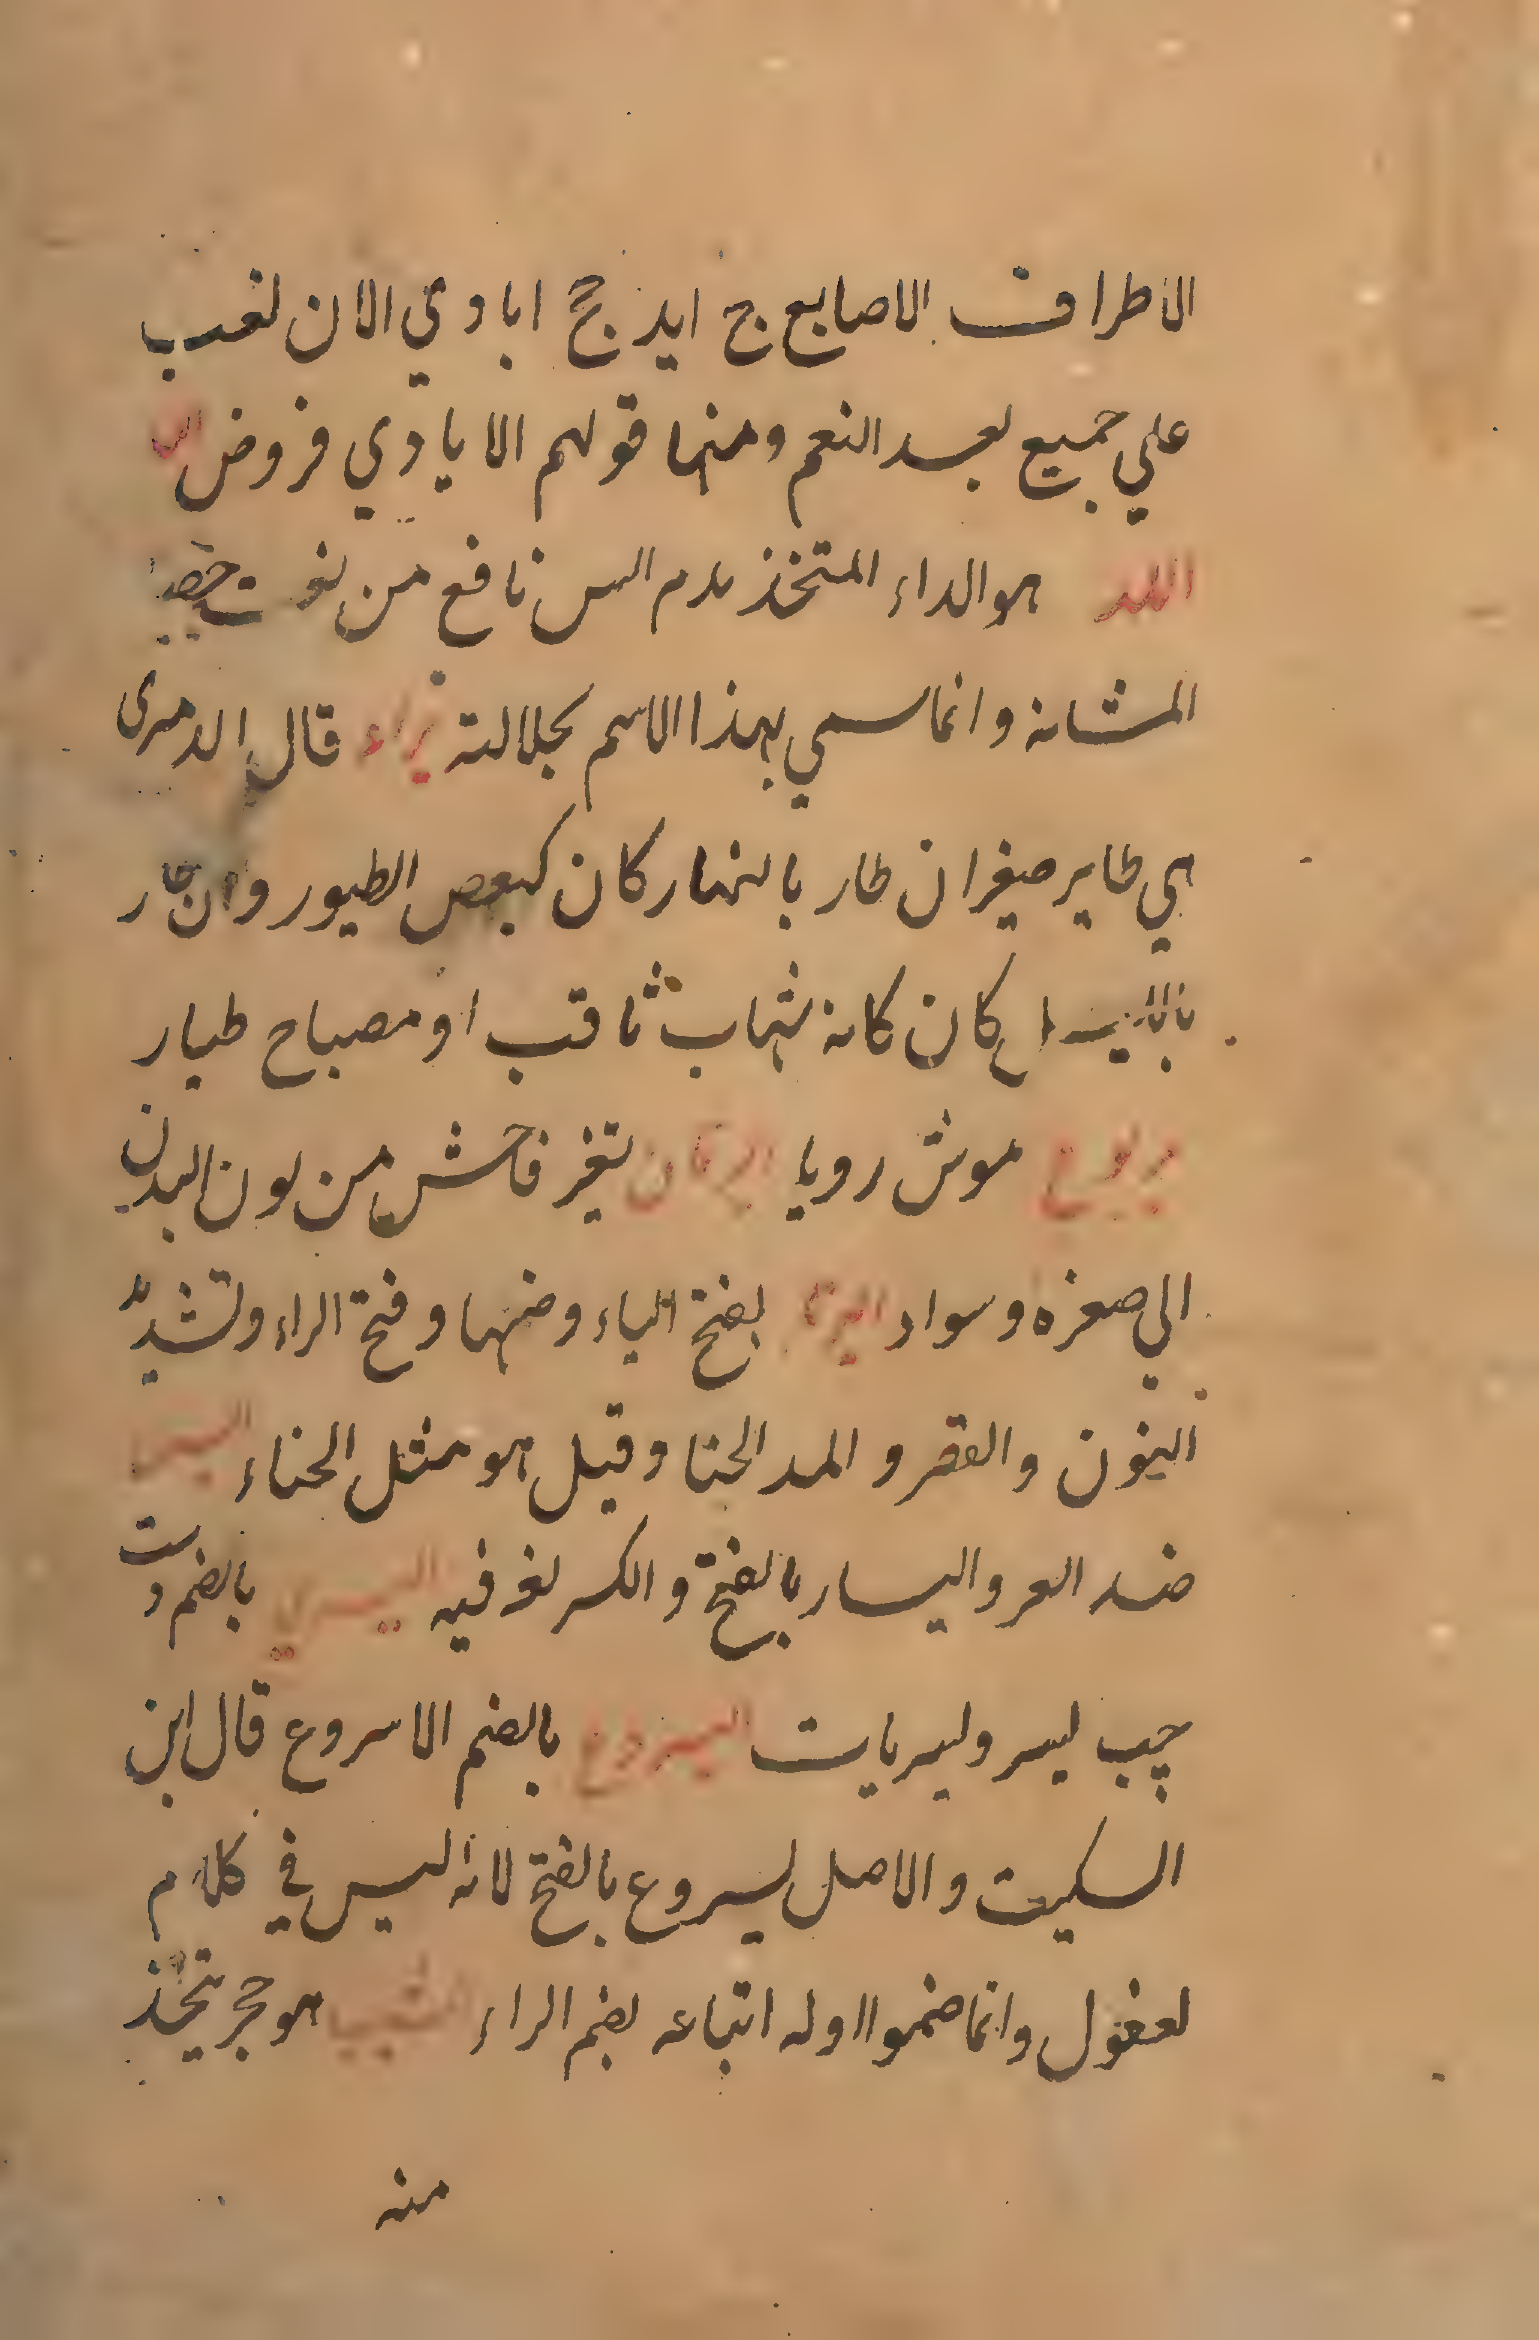 الاطراف الاصابع ج ايد جج ايادي الان لغب
علي جميع لعد النعم ومنها قولهم الايادي فروض
الله هو الداء المتخذ بدم التيس نافع من حصاة
المثانه وانما سمي بهذا الاسم لجلالته يراع قال الدمرى
هي طاير صغير ان طار بالنهار كان كبعض الطيور وان طار
بالليل كان كانه شهاب ثاقب او مصباح طيار
يربوع موش روبا اليرقان تغير فاحش من لون البدن
الي صفرة وسواد اليرنا بفتح الياء وضمها وفتح الراء وتشديد
النون والقصر والمد الحنا وقيل هو مثل الحناء اليسر
ضد العسر واليسار بالفتح والكسر لغة فيه اليسري بالضم دست
چب ليسر وليسريات اليسروع بالضم الاسروع قال ابن
السكيت والاصل ليسروع بالفتح لانه ليس في كلام
لعفول وانما ضموا اوله اتباعه لضم الراء اليشب هو حجر يتخذ
منه